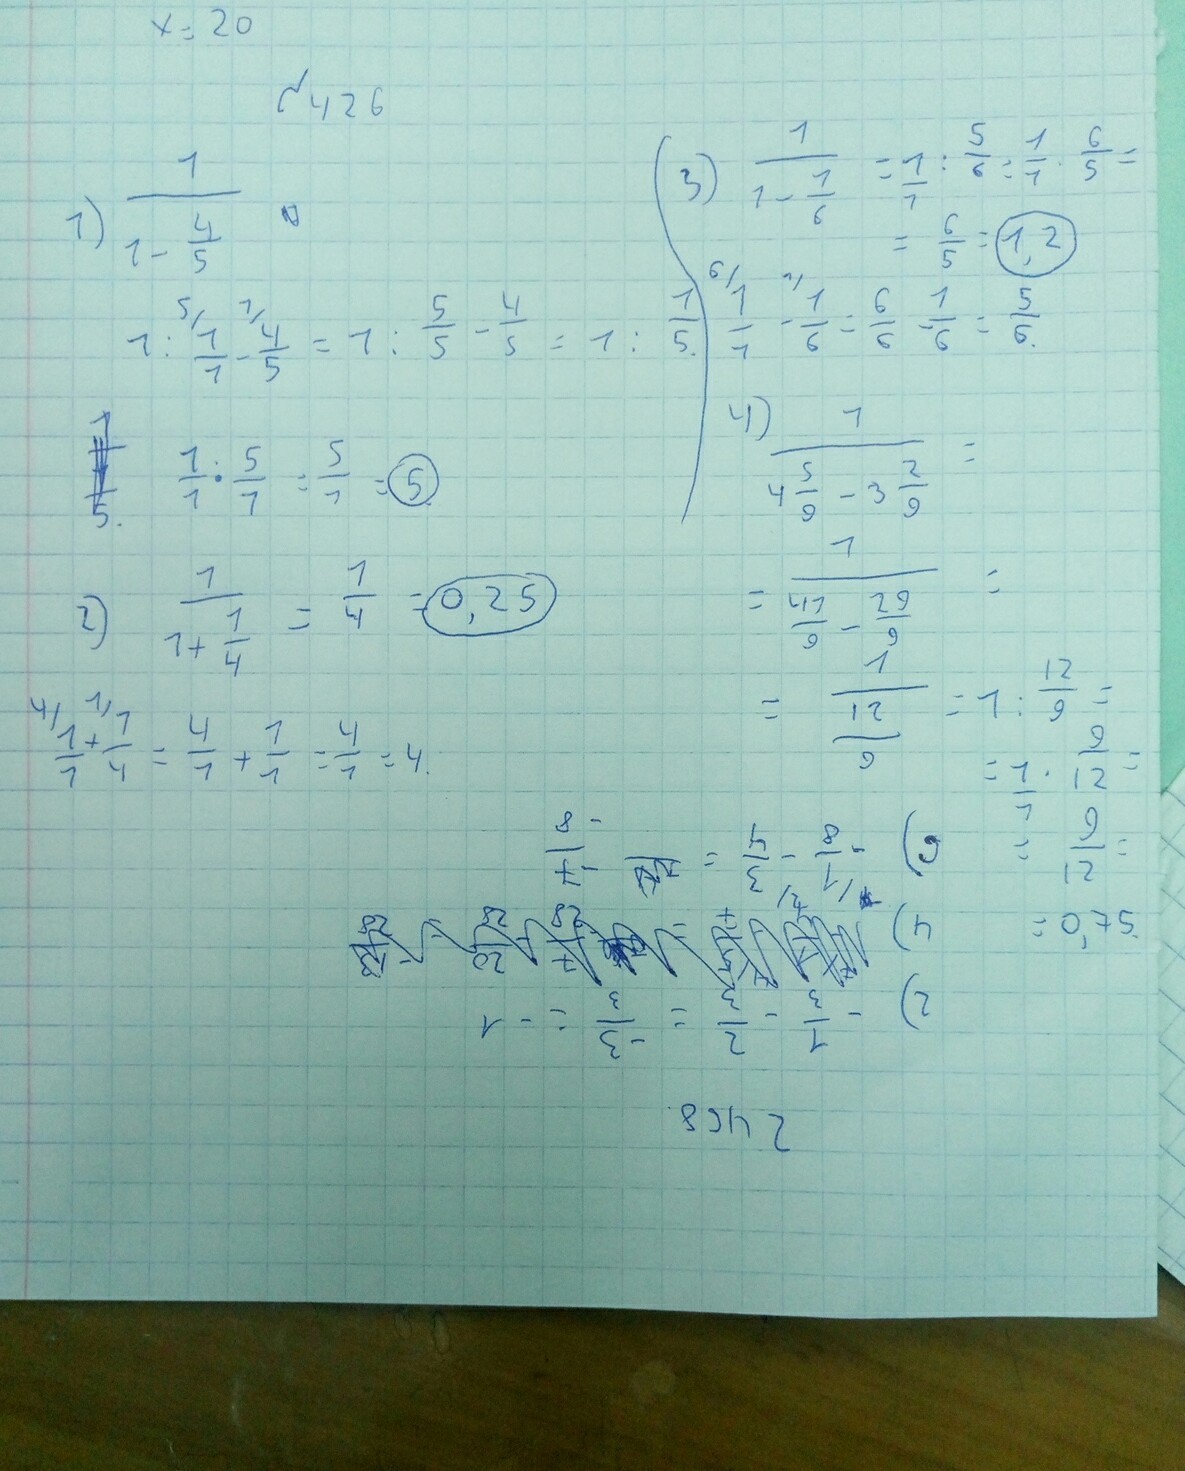 x = 20
№426
1) 1/(1 - 4/5)
1 : 5/ 1/1 - 1/ 4/5 = 1 : 5/5 - 4/5 = 1 : 1/5.
1/1 · 5/1 = 5/1 = 5
2) 1/(1 + 1/4) = 1/4 = 0,25
4/ 1/1 + 1/ 1/4 = 4/1 + 1/1 = 4/1 = 4.
3) 1/(1 - 1/6) = 1/1 : 5/6 = 1/1 · 6/5 =
= 6/5 = 1,2
6/ 1/1 - 1/6 = 6/6 - 1/6 = 5/6.
4) 1/(4 5/9 - 3 2/9) =
= 1/(41/9 - 29/9) =
= 1/(12/9) = 1 : 12/9 =
= 1/1 · 9/12 =
= 9/12 =
= 0,75.
2468
2) - 1/3 - 2/3 = -3/3 = - 1
4)
6) - 1/8 - 3/4 = -7/8